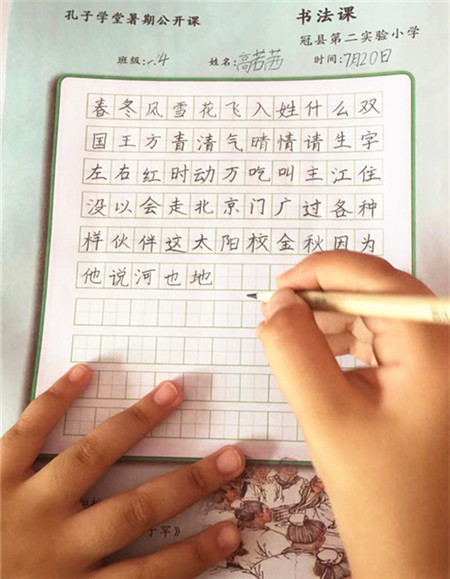 孔子学堂暑期公开课 书法课
冠县第二实验小学
班级:一.4 姓名:高茜茜 时间:7月20日
春冬风雪花飞入姓什么双
国王方青清气晴情请生字
左右红时动万吃叫主江住
没以会走北京门广过各种
样伙伴这太阳校金秋因为
他说河也地